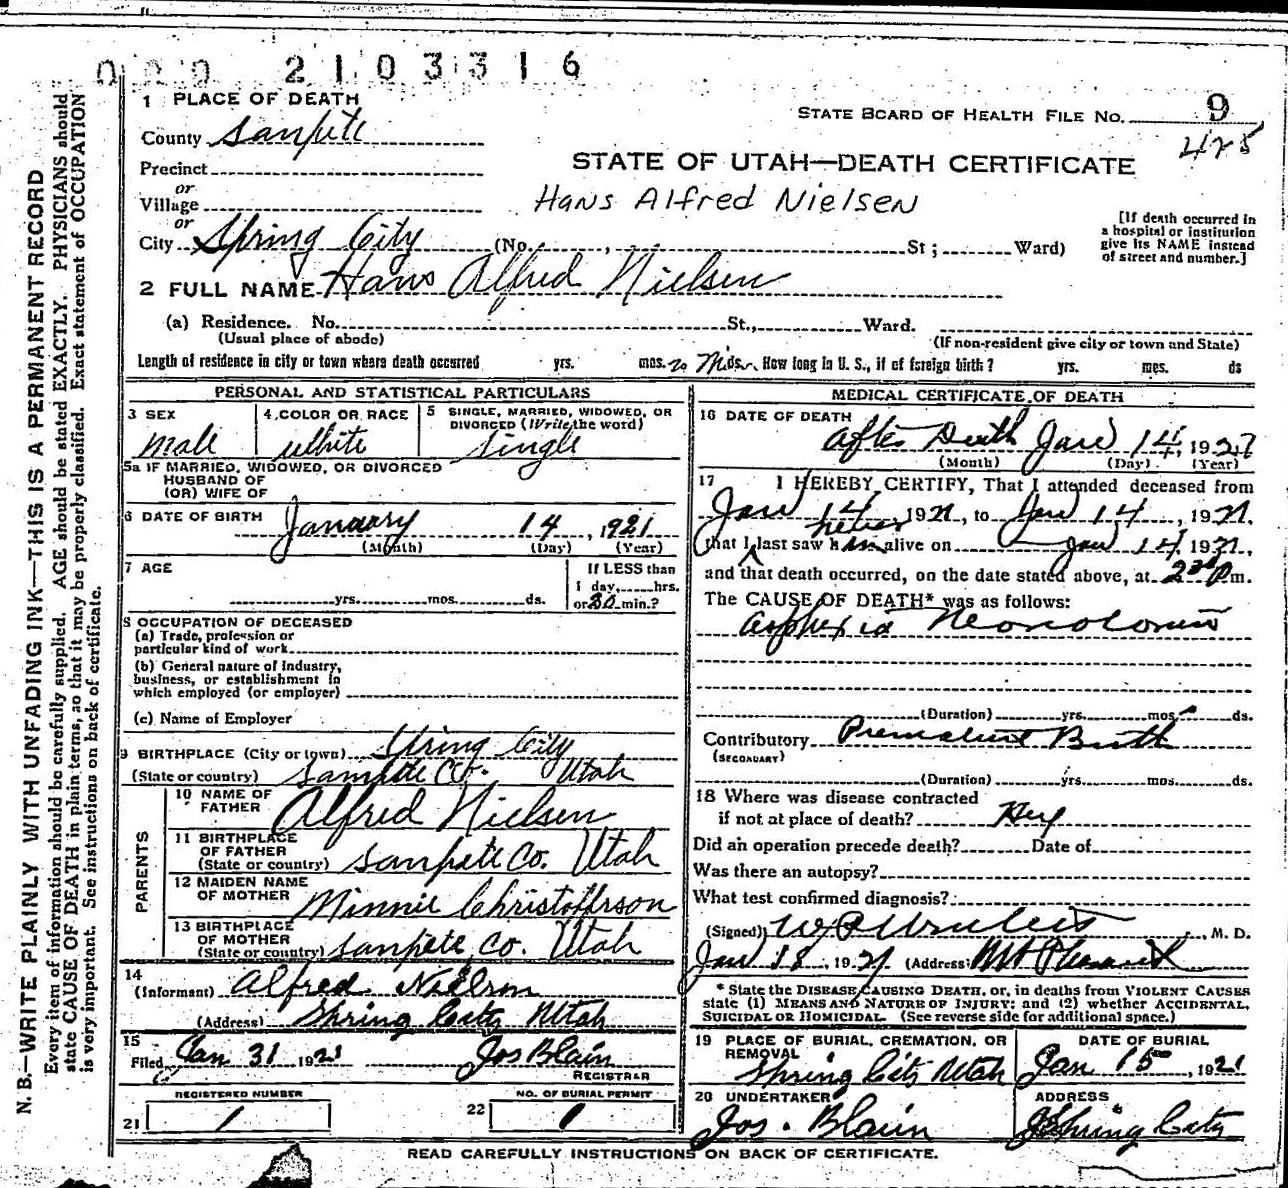 000 2103316
1 PLACE OF DEATH
STATE BOARD OF HEALTH FILE No. 9
County Sanpete
425
STATE OF UTAH—DEATH CERTIFICATE
Precinct
or
Village
Hans Alfred Nielsen
or
City Spring City (No. , St ; Ward)
[If death occurred in
a hospital or institution
give its NAME instead
of street and number.]
2 FULL NAME Hans Alfred Nielsen
(a) Residence. No. St., Ward.
(Usual place of abode) (If non-resident give city or town and State)
Length of residence in city or town where death occurred yrs. mos. 20 Min ds. How long in U. S., if of foreign birth? yrs. mos. ds
PERSONAL AND STATISTICAL PARTICULARS
3 SEX 4 COLOR OR RACE 5 SINGLE, MARRIED, WIDOWED, OR
DIVORCED (Write the word)
male white single
5a IF MARRIED, WIDOWED, OR DIVORCED
HUSBAND OF
(OR) WIFE OF
6 DATE OF BIRTH January 14, 1921
(Month) (Day) (Year)
7 AGE If LESS than
1 day, hrs.
yrs. mos. ds. or 30 min.?
8 OCCUPATION OF DECEASED
(a) Trade, profession or
particular kind of work
(b) General nature of Industry,
business, or establishment in
which employed (or employer)
(c) Name of Employer
9 BIRTHPLACE (City or town) Spring City
(State or country) Sanpete Co. Utah
PARENTS
10 NAME OF
FATHER Alfred Nielsen
11 BIRTHPLACE
OF FATHER
(State or country) Sanpete Co. Utah
12 MAIDEN NAME
OF MOTHER Minnie Christofferson
13 BIRTHPLACE
OF MOTHER
(State or country) Sanpete Co. Utah
14
(Informant) Alfred Nielson
(Address) Spring City Utah
15
Filed Jan 31 1921 Jos Blain
REGISTRAR
REGISTERED NUMBER NO. OF BURIAL PERMIT
21 1 22 1
MEDICAL CERTIFICATE OF DEATH
16 DATE OF DEATH
after Death Jan 14, 1921
(Month) (Day) (Year)
17 I HEREBY CERTIFY, That I attended deceased from
Jan 14 1921, to Jan 14, 1921,
never
that I last saw him alive on Jan 14 1921,
and that death occurred, on the date stated above, at 2 30 P m.
The CAUSE OF DEATH* was as follows:
Asphexia Neonatorum
(Duration) yrs. mos. ds.
Contributory Premature Birth
(SECONDARY)
(Duration) yrs. mos. ds.
18 Where was disease contracted
if not at place of death?
Did an operation precede death? Date of
Was there an autopsy?
What test confirmed diagnosis?
(Signed) , M. D.
Jan 18, 1921 (Address) Mt Pleasant
* State the DISEASE CAUSING DEATH, or, in deaths from VIOLENT CAUSES
state (1) MEANS AND NATURE OF INJURY: and (2) whether ACCIDENTAL,
SUICIDAL OR HOMICIDAL. (See reverse side for additional space.)
19 PLACE OF BURIAL, CREMATION, OR
REMOVAL
Spring City Utah
DATE OF BURIAL
Jan 15, 1921
20 UNDERTAKER
Jos. Blain
ADDRESS
Spring City
READ CAREFULLY INSTRUCTIONS ON BACK OF CERTIFICATE.
N. B.—WRITE PLAINLY WITH UNFADING INK—THIS IS A PERMANENT RECORD
Every item of information should be carefully supplied. AGE should be stated EXACTLY. PHYSICIANS should
state CAUSE OF DEATH in plain terms, so that it may be properly classified. Exact statement of OCCUPATION
is very important. See instructions on back of certificate.